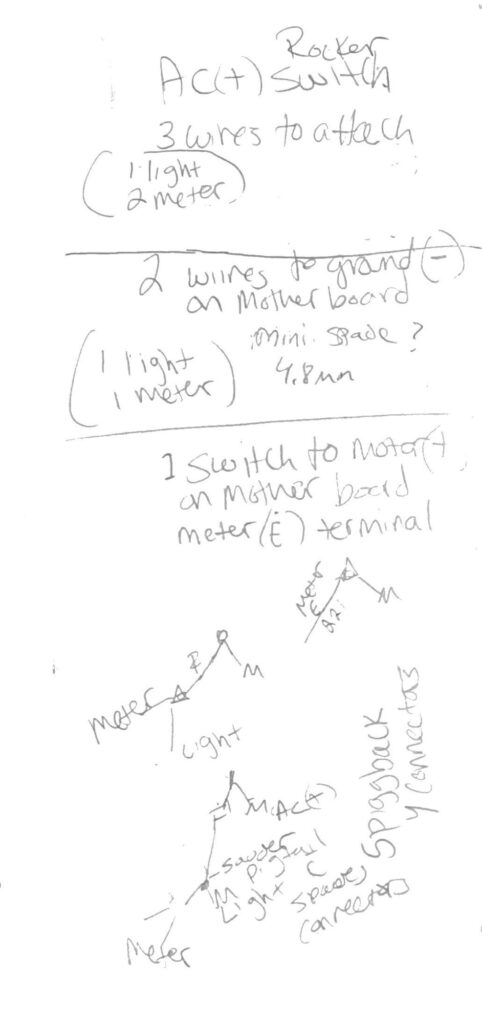 Rocker
AC(+) Switch
3 wires to attach
(1 light
2 meter)
2 wiires to graind (-)
on Mother board
(1 light
1 meter)
mini spade ?
4.8mm
1 Switch to Motor(+
on Mother board
meter(E) terminal
Meter
E
M
F
M
Meter
Light
M AC(+)
Souder
M Pigtail
Light C
Spades
Connectors
Meter
5 piggback
Y Connectors